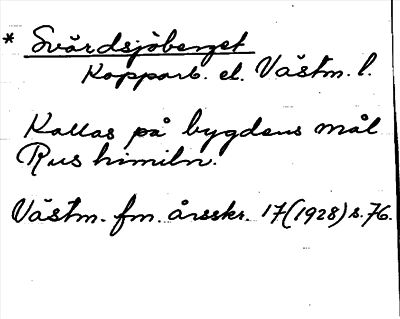 * Svärdsjöberget
Kopparb. el. Västm. l.
Kallas på bygdens mål
Rus himiln.
Västm. fm. årsskr. 17(1928) s. 76.